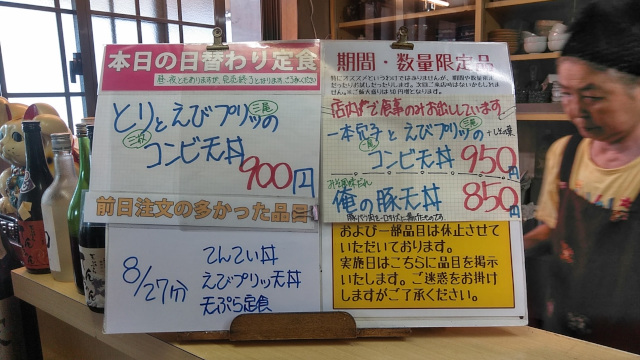 本日の日替わり定食
昼・夜ともありますが、完売終了となります。ご了承ください
とりとえびプリッツの
三枚
三尾
コンビ天丼
900円
前日注文の多かった品目
8/27分
てんてい丼
えびプリッツ天丼
天ぷら定食
期間・数量限定品
店内まで食事のみお出ししています
一本穴子とえびプリッツの
三尾
コンビ天丼 950円
俺の豚天丼 850円
および一部品目は休止させて
いただいております。
実施日はこちらに品目を掲示
いたします。ご迷惑をお掛け
しますがご了承ください。